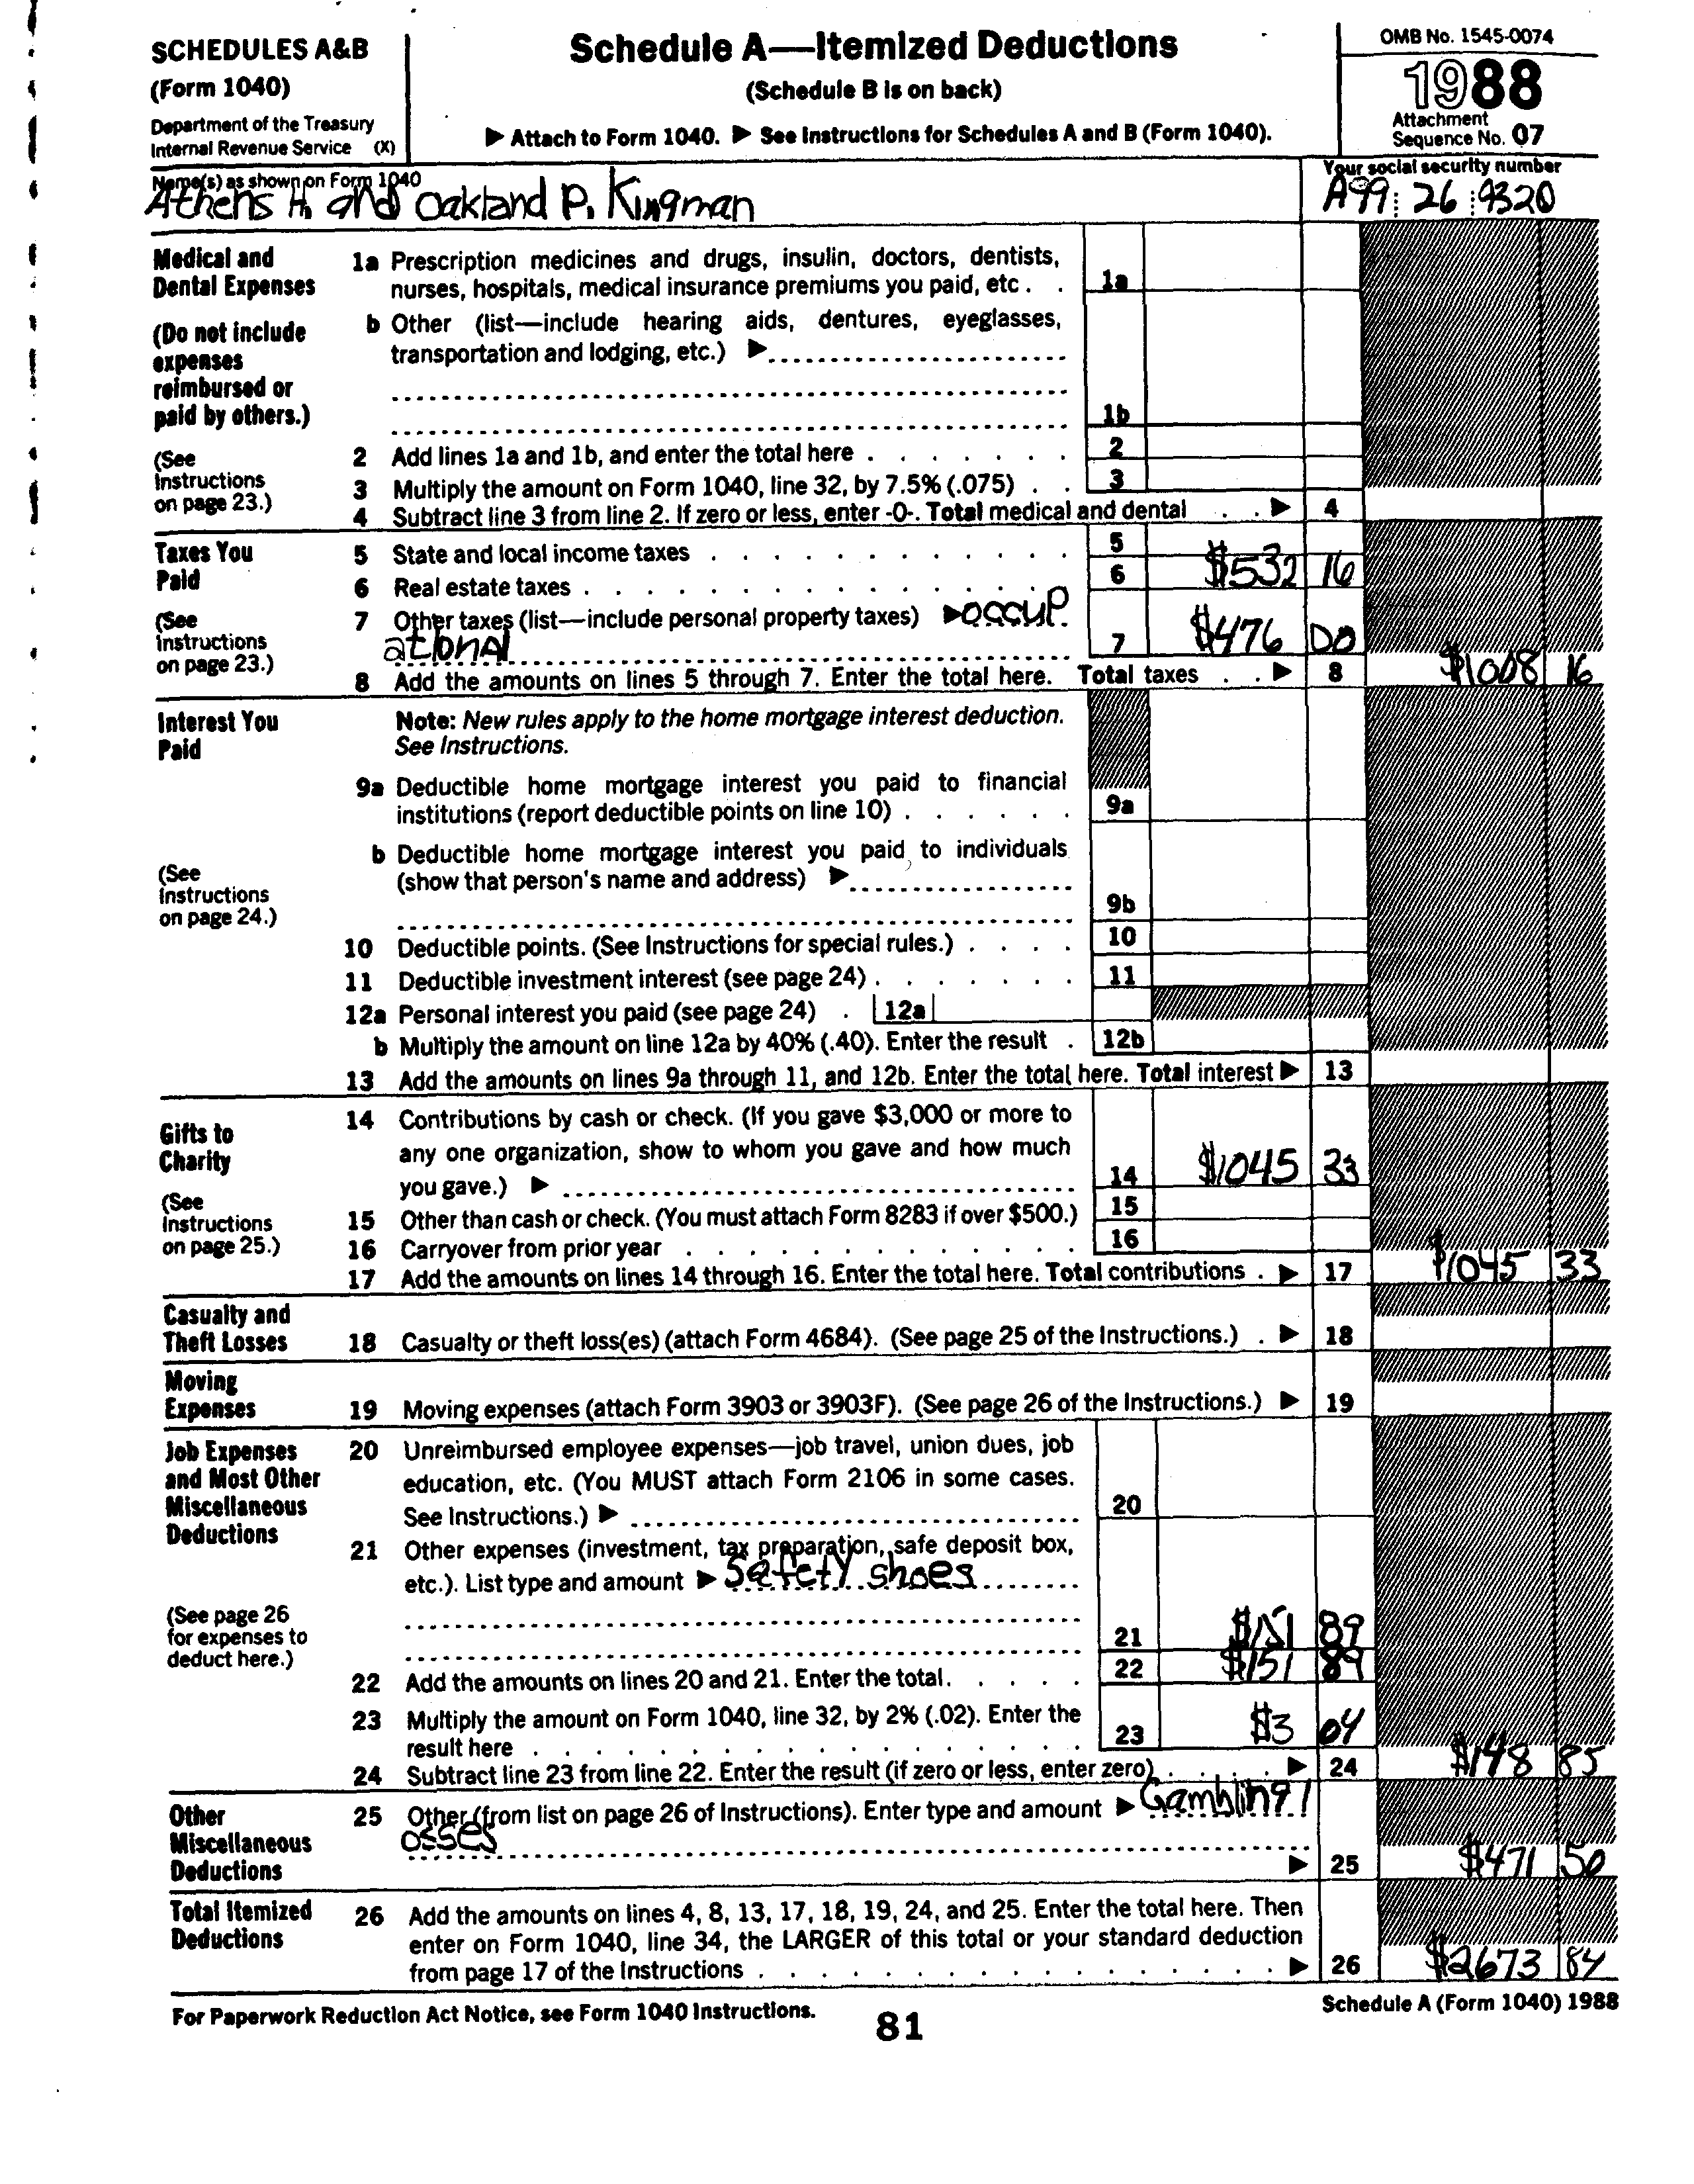 SCHEDULES A&B
(Form 1040)
Department of the Treasury
Internal Revenue Service (X)
Schedule A—Itemized Deductions
(Schedule B is on back)
▶ Attach to Form 1040. ▶ See Instructions for Schedules A and B (Form 1040).
OMB No. 1545-0074
1988
Attachment
Sequence No. 07
Name(s) as shown on Form 1040
Athens H. and Oakland P. Kingman
Your social security number
A99 26 9320
Medical and
Dental Expenses
(Do not include
expenses
reimbursed or
paid by others.)
(See
Instructions
on page 23.)
1a Prescription medicines and drugs, insulin, doctors, dentists,
nurses, hospitals, medical insurance premiums you paid, etc . . 1a
b Other (list—include hearing aids, dentures, eyeglasses,
transportation and lodging, etc.) ▶
1b
2 Add lines 1a and 1b, and enter the total here . . . . . . . 2
3 Multiply the amount on Form 1040, line 32, by 7.5% (.075) . . 3
4 Subtract line 3 from line 2. If zero or less, enter -0-. Total medical and dental . . ▶ 4
Taxes You
Paid
(See
Instructions
on page 23.)
5 State and local income taxes . . . . . . . . . . . . 5
6 Real estate taxes . . . . . . . . . . . . . . . 6 $532 16
7 Other taxes (list—include personal property taxes) ▶ occup
ational 7 $476 00
8 Add the amounts on lines 5 through 7. Enter the total here. Total taxes . . ▶ 8 $1008 16
Interest You
Paid
(See
Instructions
on page 24.)
Note: New rules apply to the home mortgage interest deduction.
See Instructions.
9a Deductible home mortgage interest you paid to financial
institutions (report deductible points on line 10) . . . . . . 9a
b Deductible home mortgage interest you paid to individuals
(show that person's name and address) ▶
9b
10 Deductible points. (See Instructions for special rules.) . . . . 10
11 Deductible investment interest (see page 24) . . . . . . . 11
12a Personal interest you paid (see page 24) . 12a
b Multiply the amount on line 12a by 40% (.40). Enter the result . 12b
13 Add the amounts on lines 9a through 11, and 12b. Enter the total here. Total interest ▶ 13
Gifts to
Charity
(See
Instructions
on page 25.)
14 Contributions by cash or check. (If you gave $3,000 or more to
any one organization, show to whom you gave and how much
you gave.) ▶ 14 $1045 33
15 Other than cash or check. (You must attach Form 8283 if over $500.) 15
16 Carryover from prior year . . . . . . . . . . . . . 16
17 Add the amounts on lines 14 through 16. Enter the total here. Total contributions . ▶ 17 $1045 33
Casualty and
Theft Losses
18 Casualty or theft loss(es) (attach Form 4684). (See page 25 of the Instructions.) . ▶ 18
Moving
Expenses
19 Moving expenses (attach Form 3903 or 3903F). (See page 26 of the Instructions.) ▶ 19
Job Expenses
and Most Other
Miscellaneous
Deductions
(See page 26
for expenses to
deduct here.)
20 Unreimbursed employee expenses—job travel, union dues, job
education, etc. (You MUST attach Form 2106 in some cases.
See Instructions.) ▶ 20
21 Other expenses (investment, tax preparation, safe deposit box,
etc.). List type and amount ▶ Safety shoes
21 $151 89
22 Add the amounts on lines 20 and 21. Enter the total . . . . . 22 $151 89
23 Multiply the amount on Form 1040, line 32, by 2% (.02). Enter the
result here . . . . . . . . . . . . . . . . . 23 $3 04
24 Subtract line 23 from line 22. Enter the result (if zero or less, enter zero) . . . . . ▶ 24 $148 85
Other
Miscellaneous
Deductions
25 Other (from list on page 26 of Instructions). Enter type and amount ▶ Gambling l
osses
▶ 25 $471 50
Total Itemized
Deductions
26 Add the amounts on lines 4, 8, 13, 17, 18, 19, 24, and 25. Enter the total here. Then
enter on Form 1040, line 34, the LARGER of this total or your standard deduction
from page 17 of the Instructions . . . . . . . . . . . . . . . . . ▶ 26 $2673 84
For Paperwork Reduction Act Notice, see Form 1040 Instructions.
81
Schedule A (Form 1040) 1988